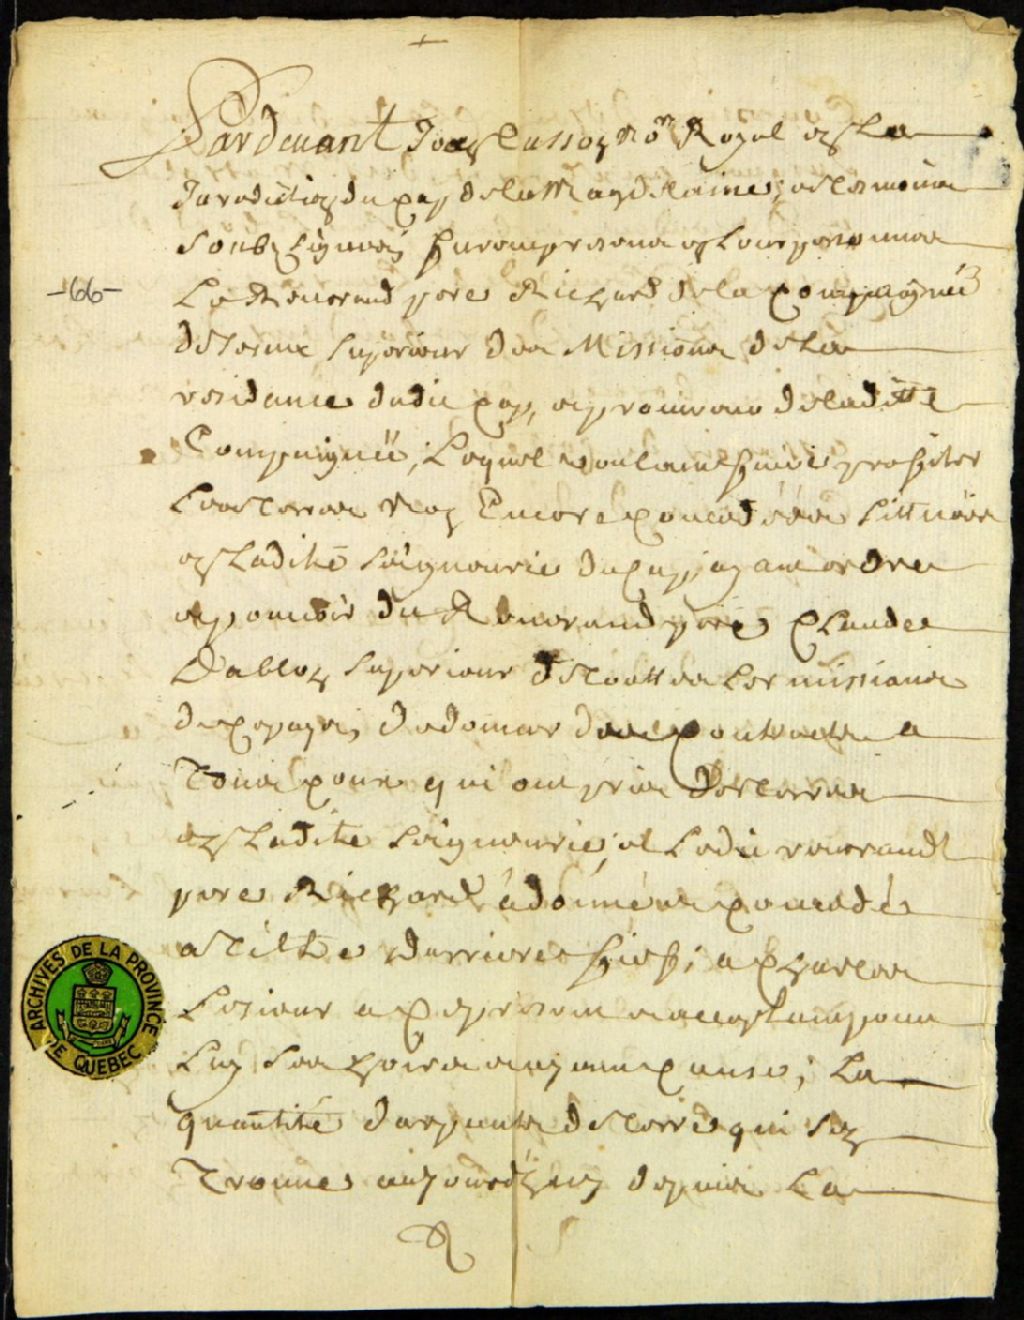 Pardevant Jean Cusson no.re Royal en La
Jurodiction du cap de la Magdelaine, et temoins
soubz signez, fut en presence en Leurs personnes
-66-
Le Reverand pere Richard de la Compagnie
de Jesus superieur des Missions de La
residance dudit cap, et procureur de laditte
Compaignie, Lequel voulant faire profiter
Les Terres non Encore concedées sittuées
en Ladite seigneurie du cap, ayant ordre
et pouvoir du Reverand pere Claude
Dablon superieur de Toutte Les missions
de ce pays, de donner des contracts a
Tous ceux qui ont pris des terres
en Ladite seigneurie, et Ledit reverand
pere Richard a donné et concedé
a Tiltre darriere fief, a Charles
Lesieur a ce present et acceptant pour
Luy Ses hoirs et ayant cause, La
quantité darpents de Terre qui se
Trouve aujourdhuy depuis La
ARCHIVES DE LA PROVINCE DE QUEBEC